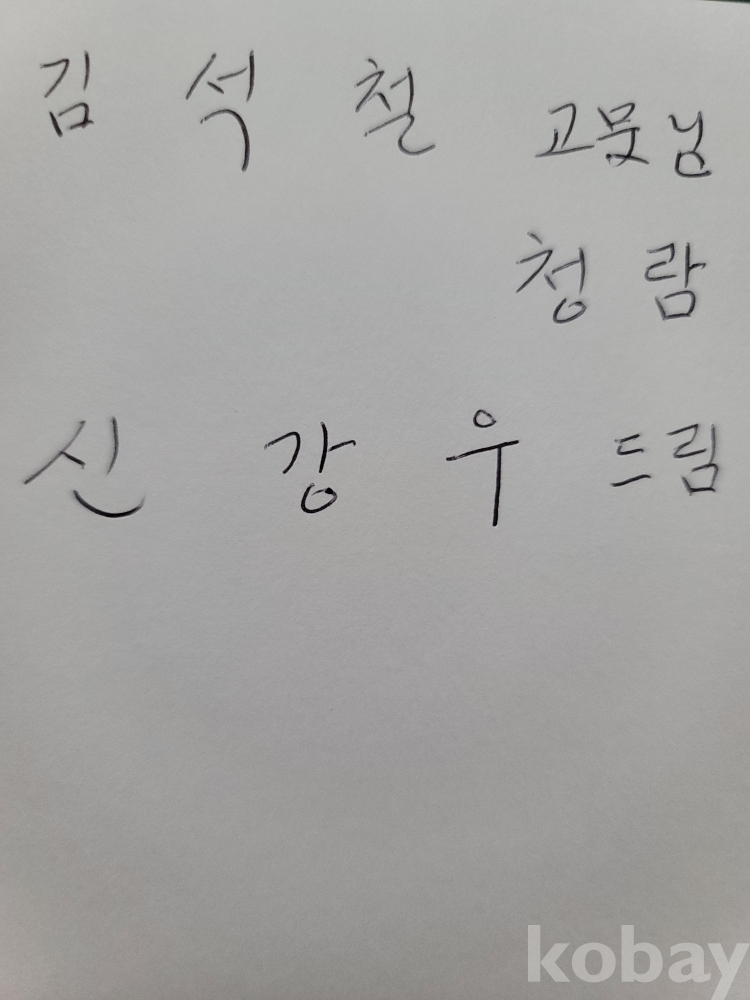 김 석 철 고문님
청 람
신 강 우 드림
kobay